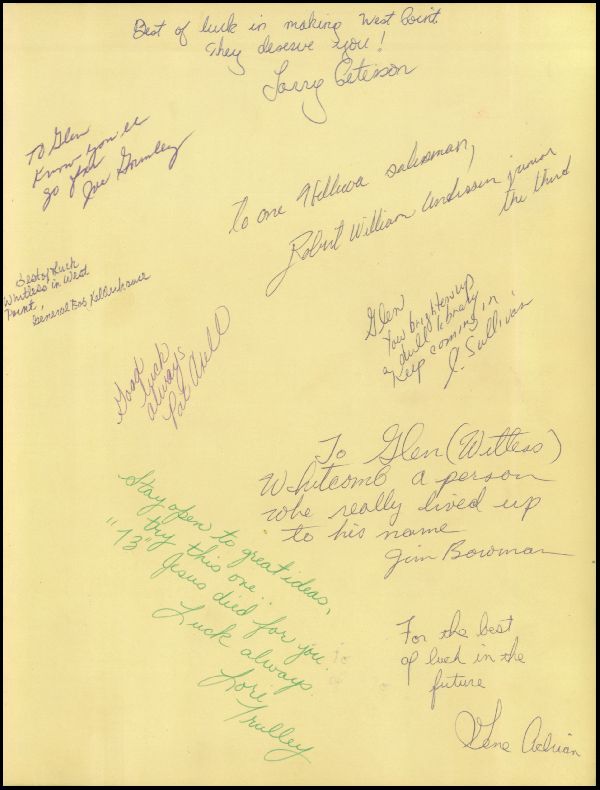 Best of luck in making West Point.
They deserve you!
Larry Peterson
To Glen
Know you'll
go far
Joe
To one Helluva salesman,
Robert William Anderson junior
the third
Best of Luck
Whitless in West
Point,
General Bob
Glen
You brighten up
a dull library
Keep coming in
J. Sullivan
Good
Luck
always
Pat
To Glen (Witless)
Whitcomb a person
who really lived up
to his name
Jim Bowman
Stay open to great ideas,
try this one..
"73" Jesus died for you.
Luck always.
Lori
Trulley
For the best
of luck in the
future
Gene Adrian